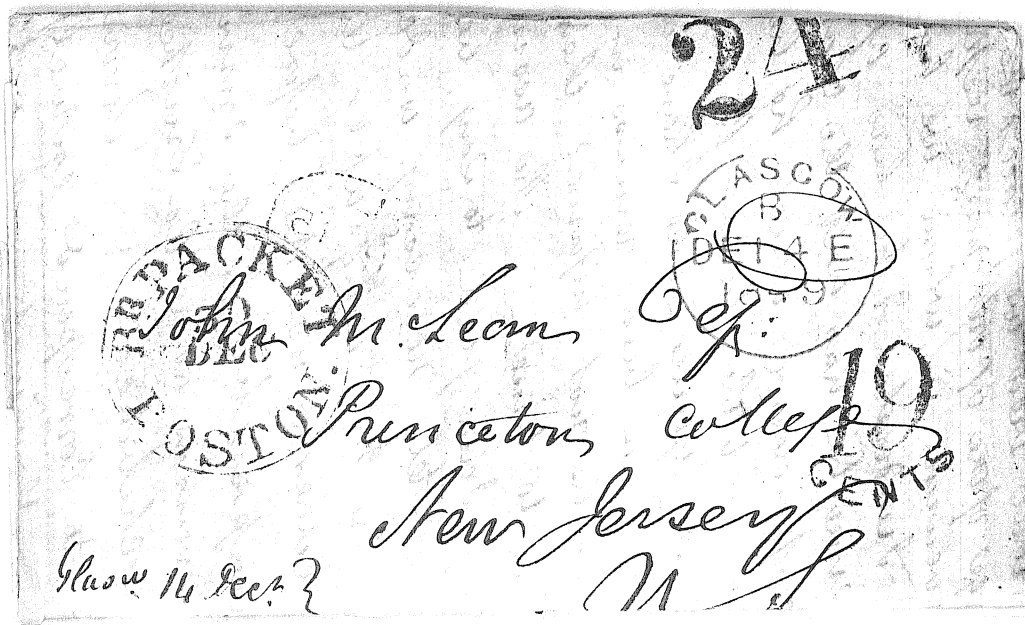 24
GLASGOW
B
DE 14 E
1849
BR PACKET
DEC
BOSTON.
John M. Lean Esq:
Princeton College
19
CENTS
New Jersey
Glasw. 14 Decr.